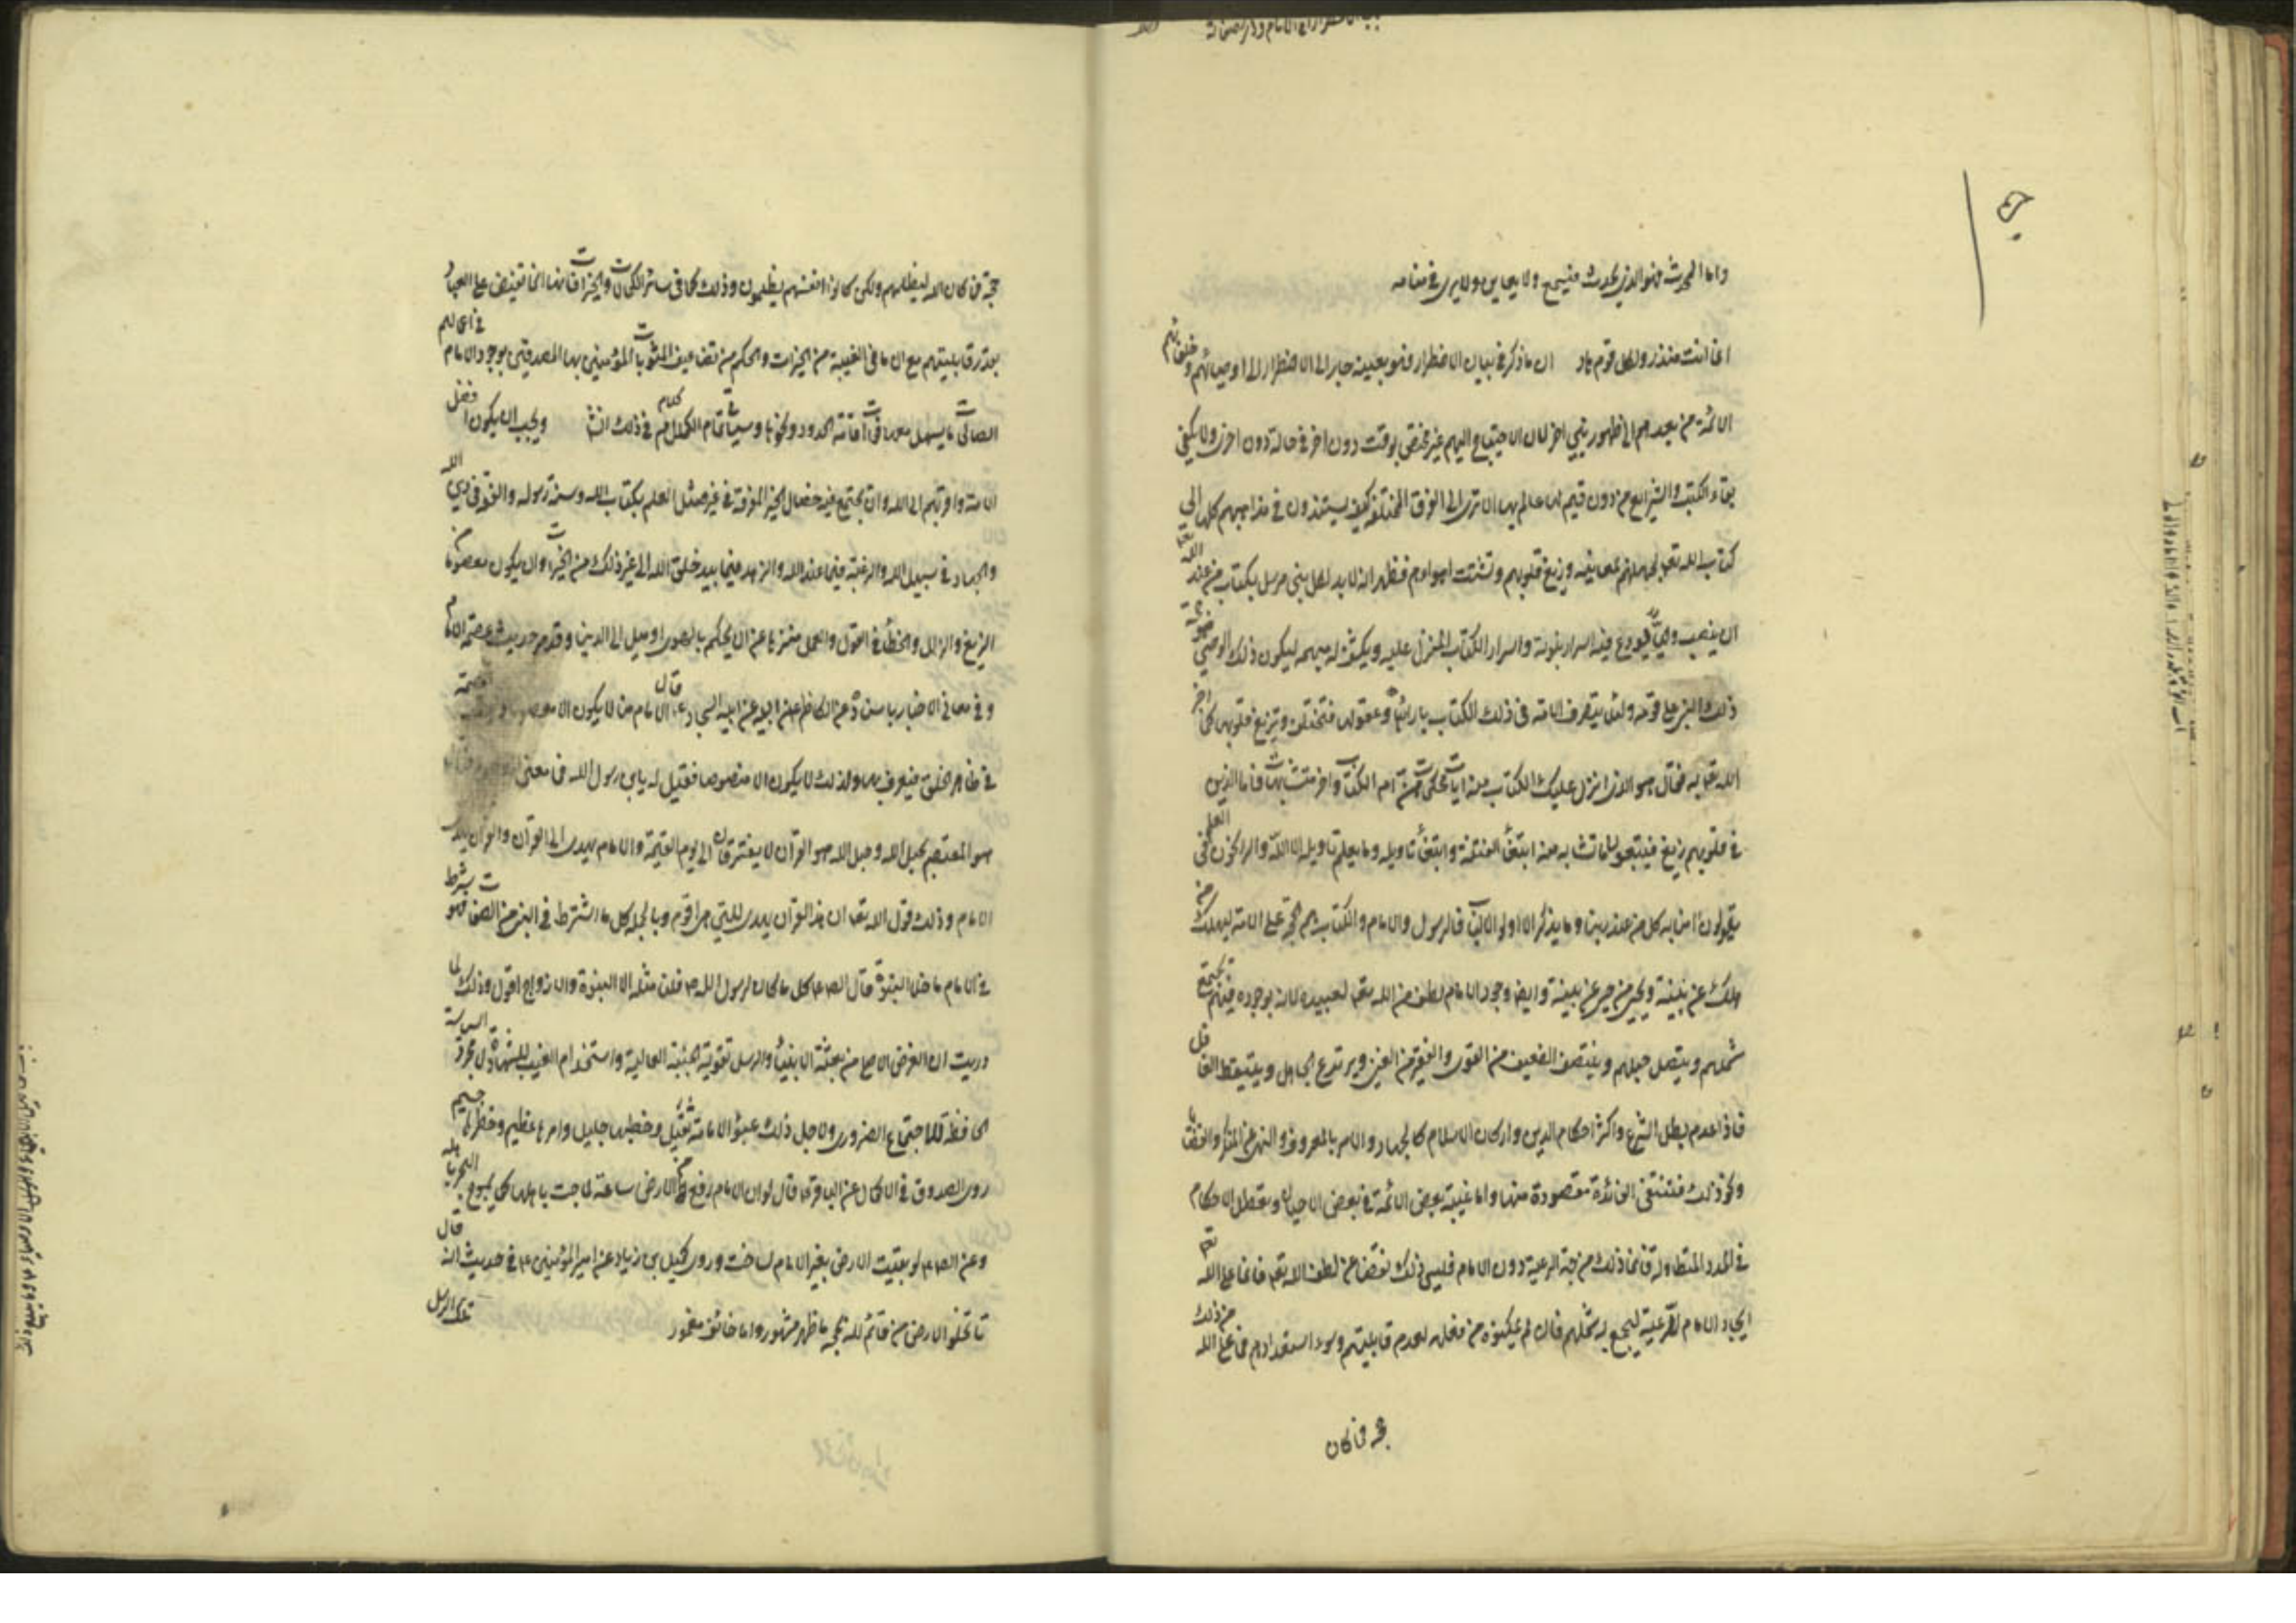 واما المحدث فهو الذي يحدث فيسمع ولا يعاين ولا يرى في منامه
انما انت منذر ولكل قوم هاد ان ما ذكر في بيان الاضطرار فهو بعينه جار الى الاضطرار الى اوصيائهم وخلفائهم
الائمة من بعدهم الى ظهور نبي اخر لان الاحتياج اليهم غير مختص بوقت دون اخر وفي حالة دون اخرى ولا يكفي
بقاء الكتب والشرايع من دون قيم لها عالم بها الا ترى الى الفرق المختلفة كيف يستندون في مذاهبهم كلها الى
كتاب الله تعالى لجهلهم بمعانيه وزيغ قلوبهم وتشتت اهوائهم فظهر انه لا بد لكل نبي مرسل بكتاب من عند الله تعا
ان ينصب وصيا يودع فيه اسرار نبوته واسرار الكتاب المنزل عليه ويكشف له مبهمه ليكون ذلك الوصي حجة
ذلك النبي على قومه ولئلا يتصرف الامة في ذلك الكتاب بارائها وعقولها فتختلف وتزيغ قلوبها كما اخبر
الله تعا به فقال هو الذي انزل عليك الكتاب منه ايات محكمات هن ام الكتاب واخر متشابهات فاما الذين
في قلوبهم زيغ فيتبعون ما تشابه منه ابتغاء الفتنة وابتغاء تاويله وما يعلم تاويله الا الله والراسخون في العلم
يقولون امنا به كل من عند ربنا وما يذكر الا اولوا الالباب فالرسول والامام والكتاب هم الحجة على الامة ليهلك من
هلك عن بينة ويحيى من حي عن بينة وايضا وجود الامام لطف من الله تعا لعبيده لانه بوجوده فيهم يجتمع
شملهم ويتصل حبلهم وينتصف الضعيف من القوى والفقير من الغنى ويرتدع الجاهل ويتيقظ الغافل
فاذا عدم بطل الشرع واكثر احكام الدين واركان الاسلام كالجهاد والامر بالمعروف والنهي عن المنكر والقضا
ونحو ذلك فتنتفى الفائدة مقصودة منها واما غيبة بعض الائمة في بعض الاحيان وتعطل الاحكام
في المدد المتطاولة فانما ذلك من جهة الرعية دون الامام فليس ذلك نقضا من لطف الله تعا فانما على الله تعا
ايجاد الامام للرعية ليجمع به شملهم فان لم يمكنوه من فعله لعدم قابليتهم وسوء استعدادهم فما على الله من ذلك
حجة فما كان
حجة فما كان الله ليظلمهم ولكن كانوا انفسهم يظلمون وذلك كما في سائر الكمالات والخيرات فانها انما تفيض على العباد
بقدر قابليتهم مع ان ما في الغيبة من الخيرات والحكم من تضاعيف المثوبات للمؤمنين بها المصدقين بوجود الامام في اعمالهم
الصالحات ما يسهل معها فوات اقامة الحدود ونحوها وسياتي تمام الكلام في ذلك انشا ويجب ان يكون افضل
الامة واقربهم الى الله وان يجتمع فيه خصال الخير المفرقة في غيره مثل العلم بكتاب الله وسنة رسوله والفقه في دين الله
والجهاد في سبيل الله والرغبة فيما عند الله والزهد فيما بيد خلق الله الى غير ذلك من الخيرات وان يكون معصوما من
الزيغ والزلل والخطأ في القول والعمل منزها عن ان يحكم بالهوى او يميل الى الدنيا وقد مر حديث عصمة الامام
وفي معاني الاخبار باسناده عن الكاظم عن ابيه عن ابيه السجاد ع قال الامام منا لا يكون الا معصوما وليست العصمة
في ظاهر الخلق فيعرف بها ولذلك لا يكون الا منصوصا فقيل له يابن رسول الله فما معنى
هو المعتصم بحبل الله وحبل الله هو القرآن لا يفترقان الى يوم القيمة والامام يهدى الى القرآن والقرآن يهدى
الامام وذلك قول الله تعا ان هذا القرآن يهدى للتي هي اقوم وبالجملة كل ما اشترط في النبي من الصفات فهو شرط
في الامام ما خلا النبوة قال الصادق ع كل ما كان لرسول الله ص فلنا مثله الا النبوة والازواج اقول وذلك لما
دريت ان الغرض الاصلى من بعثة الانبياء والرسل تقوية الجنبة العالية واستخدام الغيب للشهادة لا مجرد السياسة
الحافظة للاجتماع الضرورى ولاجل ذلك عبؤ الامامة ثقيل وخطبها جليل وامرها عظيم وخطرها جسيم
روى الصدوق في الاكمال عن الباقر ع قال لو ان الامام رفع من الارض ساعة لماجت باهلها كما يموج البحر باهله
وعن الصادق ع لو بقيت الارض بغير الامام لساخت وروى كميل بن زياد عن امير المؤمنين ع في حديث انه قال
لا تخلو الارض من قائم لله بحجة اما ظاهر مشهور واما خائف مغمور
تلك الرسل